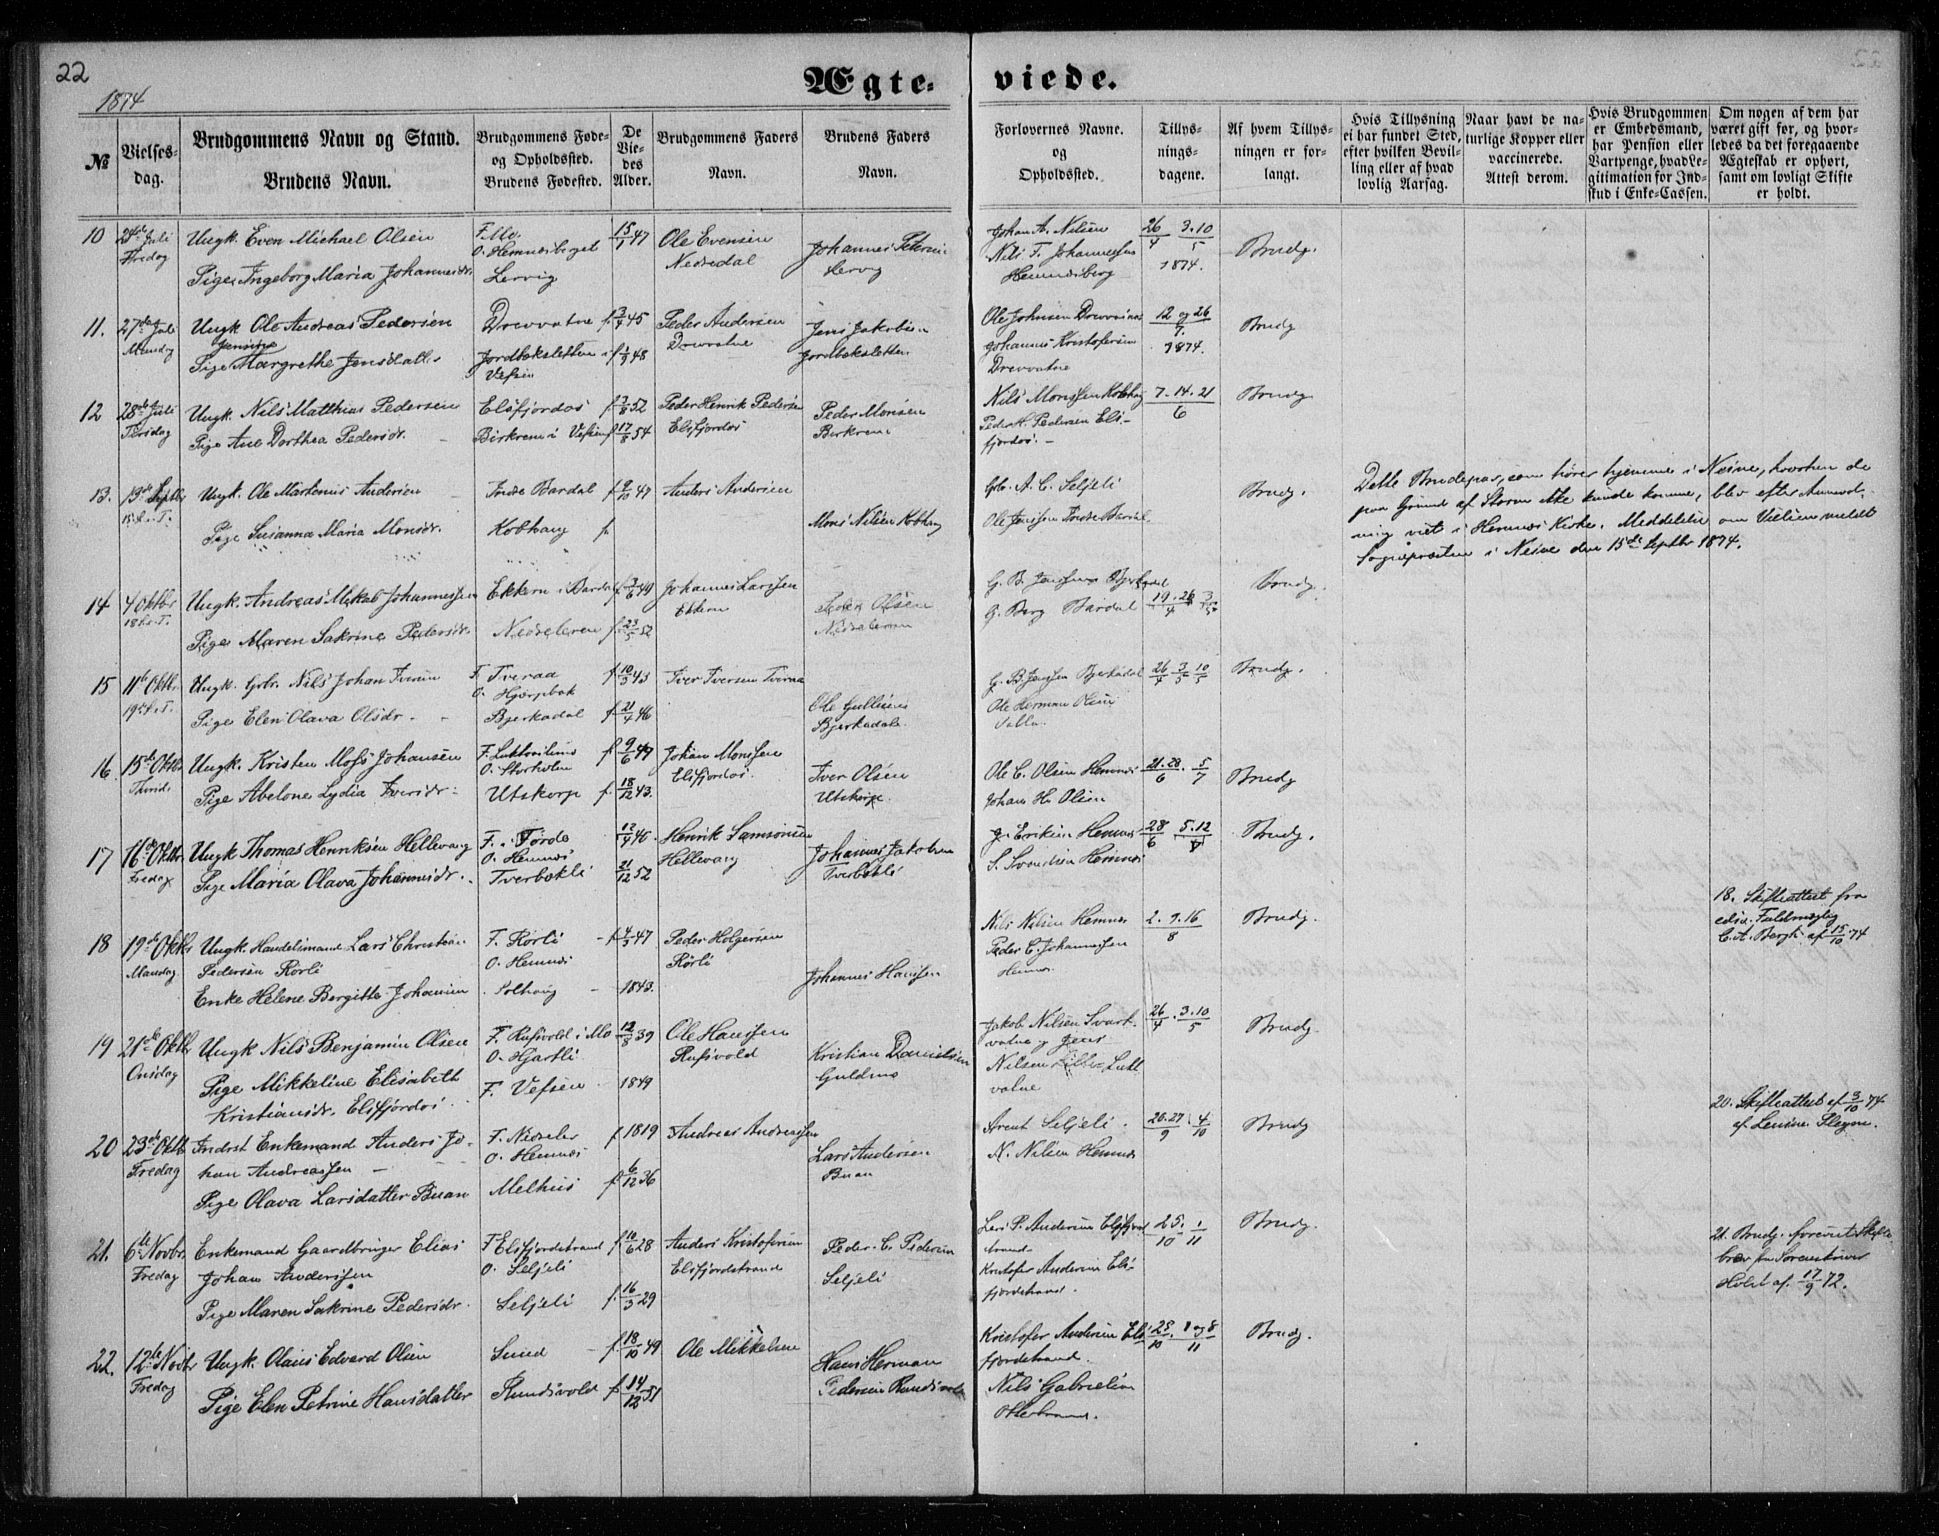 22
1874
Ægte-
viede.
№
Vielses-
dag.
Brudgommens Navn og Stand.
Brudens Navn.
Brudgommens Føde-
og Opholdssted.
Brudens Fødested.
De
Vie-
des
Alder.
Brudgommens Faders
Navn.
Brudens Faders
Navn.
Forlovernes Navne.
og
Opholdssted.
Tillys-
nings-
dagene.
Af hvem Tillys-
ningen er for-
langt.
Hvis Tillysning
ei har fundet Sted,
efter hvilken Bevil-
ling eller af hvad
lovlig Aarsag.
Naar havt de na-
turlige Kopper eller
vaccinerede.
Attest derom.
Hvis Brudgommen
er Embedsmand,
har Pension eller
Vartpenge, hvad Le-
gitimation for Ind-
stud i Enke-Cassen.
Om nogen af dem har
været gift før, og hvor-
ledes da det foregaaende
Ægteskab er ophørt,
samt om lovligt Skifte
er holdt.
10
24de Juli
Fredag
Ungk. Even Michael Olsen
Pige Ingeborg Maria Johannesdr.
F. Mo
O. Hemnesberget
Lervig
15/1 47
Ole Evensen
Nedredal
Johannes Petersen
Lervig
Johan A. Nilsen
Nils F. Johannessen
Hemnesberg
26/4 3.10/5
1874.
Brudg.
11.
27de Juli
Mandag
Ungk. Ole Andreas Pedersen
Jensine
Pige Margrethe Jensdatt.
Drevvatne
Jordbeksletten i
Vefsen
f. 3/4 45
f. 1/9 48
Peder Andersen
Drevvatne
Jens Jakobsen
Jordbeksletten
Ole Johnsen Drevvatne
Johannes Kristofersen
Drevvatne
12 og 26/7.
1874.
Brudg
12
28de Juli
Tirsdag
Ungk. Nils Matthias Pedersen
Pige Ane Dorthea Pedersdr.
Elsfjordos
Birkremi Vefsen
52
f. 17/8 54
Peder Henrik Pedersen
Elsfjordos
Peder Monsen
Berkremi
Nils Monssen Kobhaug
Peder H. Pedersen Els-
fjordos. -
7.14.21/6
Brudg
13.
13de Septbr
15 S. e. T.
Ungk. Ole Martenius Andersen
Pige Susanna Maria Monsdr.
Indre Bardal
Kobhaug
f. 9/10 47
f.
Anders Andersen
Mons Nilsen Kobhaug
Grb. A. C. Seljeli
Ole Jenssen Indre Bardal.
Brudg.
Dette Brudepar, som hører hjemme i Nesne, hvorhen de
paa Grund af Storm ikke kunde komme, blev efter Anmod-
ning viet i Hemnes Kirke. Meddelelse om Vielsen meldt
Sognepresten i Nesne den 15de Septbr 1874.
14
4 Oktbr
18 S. e. T.
Ungk. Andreas Mikal Johannessen
Pige Maren Sakrine Pedersdr.
Ekkern i Bardal
Nedreleren
49
f. 23/5 52
Johannes Larssen
Ekkern
Peder Olsen
Nedreleren
G. B. Jenssen Bjerkadal
G. Berg Bardal
19.26/4 3/5
Brudg.
15
11te Oktbr.
19 S. e. T.
Ungk. Grbr. Nils Johan Iversen
Pige Elen Olava Olsdr.
F. Tveraa
O. Hjerpbak
Bjerkadal
f. 10/3 43
f. 21/4 46
Iver Iversen Tveraa
Ole Gullesen
Bjerkadal.
G. B. Jenssen Bjerkadal
Ole Herman Olsen
Valla.
26/4 3/5 10/5
Brudg.
16.
15de Oktbr
Thorsd.
Ungk. Kristen Moss Johansen
Pige Abelone Lydia Iversdr.
O. Storholen
Utskarp
f. 9/6 49
f. 18/12 43.
Johan Monssen
Elsfjordos.
Iver Olsen
Utskarp.
Ole C. Olsen Hemnes
Johan H. Olsen
21.28/6 . 5/7
Brudg
17
16de Oktbr.
Fredag
Ungk Thomas Henriksen Hellevang
Pige Maria Olava Johannesdr.
F. i Førde
O. Hemnes
Tverbekli
46.
21/12 52
Henrik Samsonsen
Hellevang
Johannes Jakobsen
Tverbekli
J. Eriksen Hemnes
S. Svendsen Hemnes
28/6 . 5.12/7
Brudg.
18
19de Oktbr
Mandag
Ungk. Handelsmand Lars Christian
Pedersen Rørli
Enke Helene Bergitte Johansen
F. Rørli
O. Hemnes
Solhaug
f. 4/3 47
1843.
Peder Holgersen
Rørli
Johannes Hanssen
Nils Nilsen Hemnes
Peder C. Johannssen
Hemnes
2.9.16/8
Brudg.
18. Skifteattest fra
edsv. Fuldmægtig
C. A. Bergh af 15/10 74
19
21de Oktbr
Onsdag
Ungk Nils Benjamin Olsen
Pige Mikkeline Elisabeth
Kristiansdr. Elsfjordos.
F. Rufsvold i Mo
O. Hjartli
F. Vefsen
12/8 39
1849
Ole Hanssen
Rufsvold
Kristian Danielssen
Guldnes
Jakob Nilsen Svart-
vatne og Jens
Nilsen
vatne
26/4 . 3.10/5
Brudg.
20
23de Oktbr
Fredag
Inderst Enkemand Anders Jo-
han Andreassen
Pige Olava Larsdatter Buan
F. Nedreler
O. Hemnes
Melhus
f. 1819
f. 6/12 36
Andreas Andreassen
Lars Andersen
Buan
Arent Seljeli.
N. Nilsen Hemnes
20.27/9 . 4/10
Brudg
20. Skifteattest af 3/10 74
af Lensm. Slegne.
21.
6te Novbr.
Fredag
Enkemand Gaardbruger Elias
Johan Anderssen
Pige Maren Sakrine Pedersdr.
F. Elsfjordstrand
O. Seljeli
Seljeli
f. 10/6 28
f. 16/3 29
Anders Kristofersen
Elsfjordstrand
Peder C. Pedersen
Seljeli
Lars P. Andersen Elsfjord
strand
Kristofer Andersen Els-
fjordstrand.
25./10 1/11
Brudg.
21. Brudg. forevist Skifte-
brev fra Sorenskriver
Holst af 17/9 72.
22.
12te Novbr
Fredag
Ungk. Olaus Edvard Olsen
Pige Elen Petrine Hansdatter
Sund
Rundsvold
f. 18/10 49
f. 14/12 51
Ole Mikkelsen
Hans Herman
Pedersen Rundsvold
Kristofer Andersen Els-
fjordstrand.
Nils Gabrielsen
Otterstrand.
25/10. 1 og 8/11
Brudg.